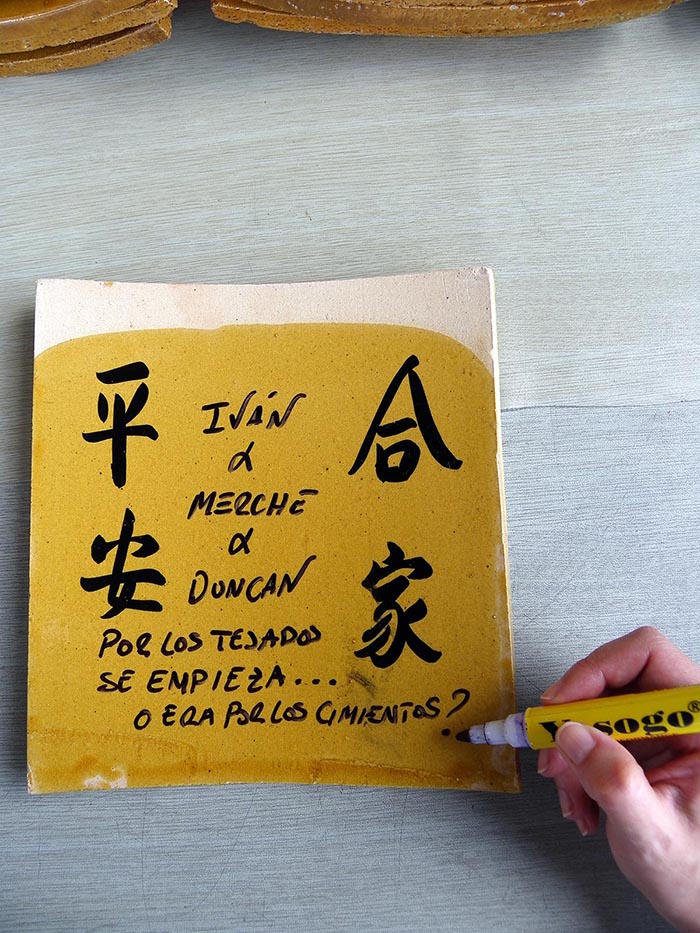 合家
平安
IVÁN
&
MERCHE
&
DUNCAN
POR LOS TEJADOS
SE EMPIEZA...
O ERA POR LOS CIMIENTOS?